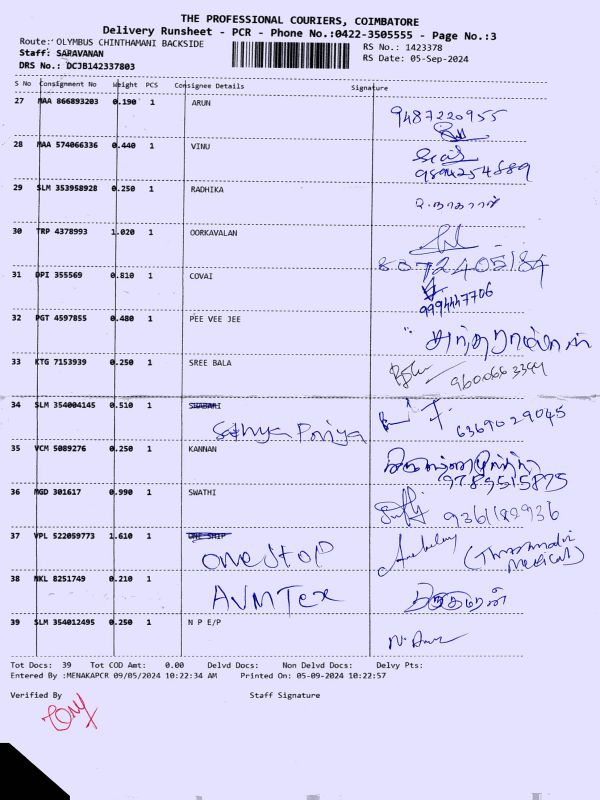 THE PROFESSIONAL COURIERS, COIMBATORE
Delivery Runsheet - PCR - Phone No.:0422-3505555 - Page No.:3
Route: OLYMBUS CHINTHAMANI BACKSIDE
RS No.: 1423378
Staff: SARAVANAN
RS Date: 05-Sep-2024
DRS No.: DCJB142337803
S No Consignment No Weight PCS Consignee Details Signature
27 MAA 866893203 0.190 1 ARUN 9487220955
28 MAA 574066336 0.440 1 VINU
29 SLM 353958928 0.250 1 RADHIKA
30 TRP 4378993 1.020 1 OORKAVALAN
8072405184
31 DPI 355569 0.810 1 COVAI
9994447706
32 PGT 4597855 0.480 1 PEE VEE JEE
33 KTG 7153939 0.250 1 SREE BALA
34 SLM 354004145 0.510 1 SHABARI
Sathya Priya 6369029045
35 VCM 5089276 0.250 1 KANNAN
9789515875
36 MGD 301617 0.990 1 SWATHI
9361182936
37 VPL 522059773 1.610 1 ONE SHIP
ONE STOP
Medical)
38 NKL 8251749 0.210 1 AVM Tex
39 SLM 354012495 0.250 1 N P E/P
Tot Docs: 39 Tot COD Amt: 0.00 Delvd Docs: Non Delvd Docs: Delvy Pts:
Entered By :MENAKAPCR 09/05/2024 10:22:34 AM Printed On: 05-09-2024 10:22:57
Verified By Staff Signature